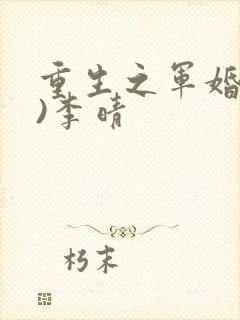 重生之军婚
)李晴
朽末